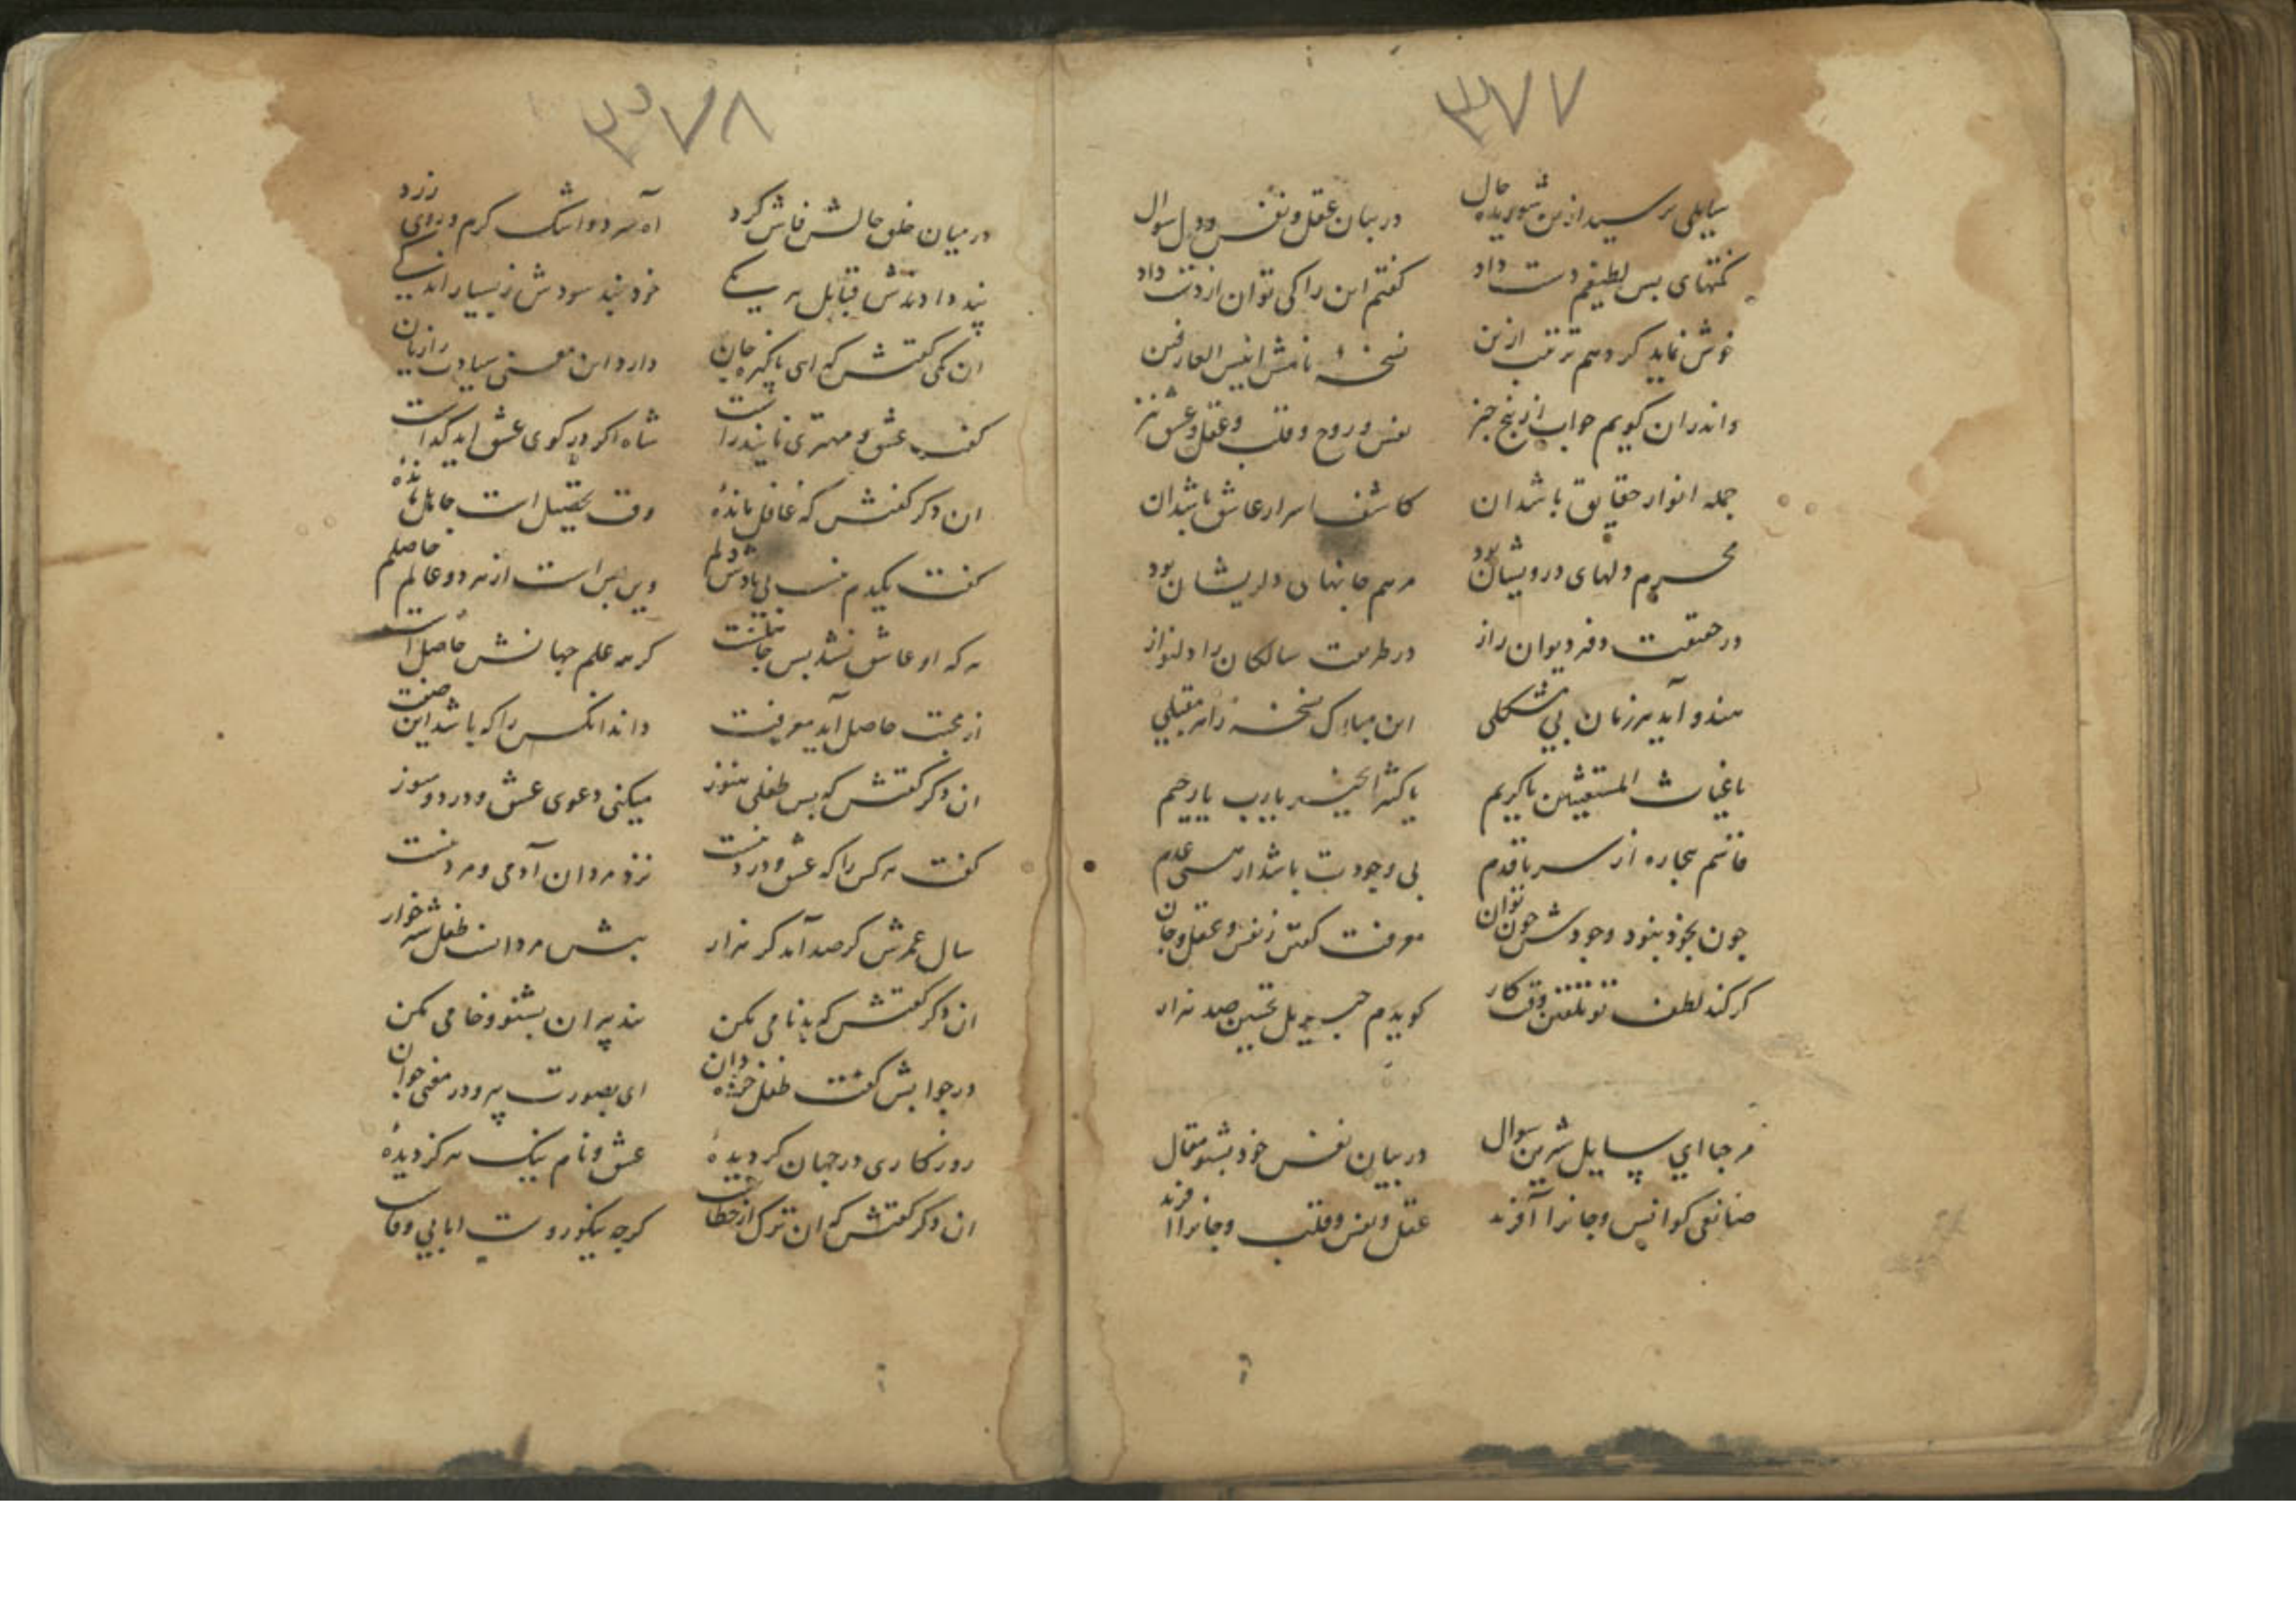 ۳۷۷
سایلی پرسید ازین شوریده حال در بیان عقل و نفس و دل سوال
نکتهای بس لطیفم دست داد گفتم این را کی توان از دست داد
خوش نماید کردهم ترتیب ازین نسخهٔ نامش انیس العارفین
و اندران کویم جواب از پنج چیز نفس و روح و قلب و عقل و عشق نیز
جمله انوار حقایق باشد ان کاشف اسرار عاشق باشد ان
محرم دلهای درویشان بود مرهم جانهای دلریشان بود
در حقیقت دفتر دیوان راز در طریقت سالکان را دلنواز
این مبارک نسخه را هر مقبلی
یا غیاث المستغیثین یا کریم یا کثیر الخیر یا رب یا رحیم
قاسم بیچاره از سر تا قدم بی وجودت باشد از هستی عدم
چون بخود نبود وجودش چون توان معرفت گفتن ز نفس و عقل و جان
کر کند لطف تو تلقین وقت کار کویدم جبریل تحسین صد هزار
مرحبا ای سایل شیرین سوال در بیان نفس خود بشنو مقال
صانعی کو انس و جانرا آفرید عقل و نفس و قلب و جانرا آفرید
۳۷۸
در میان خلق حالش فاش کرد آه سرد و اشک کرم و روی زرد
پند دادندش قبایل هر یکی خود نبد سودش ز بسیار اندکی
ان یکی گفتش که ای پاکیزه جان دارد این معنی سیادت را زیان
گفت عشق و مهتری ناید راست شاه اکر در کوی عشق اید کداست
ان دکر گفتش که غافل ماندهٔ وقت تحصیل است جاهل ماندهٔ
گفت یکدم نیست بی یادش دلم وین بس است از هر دو عالم حاصلم
هر که او عاشق نشد بس جاهلست کر همه علم جهانش حاصل است
از محبت حاصل آید معرفت داند انکس را که باشد این صفت
ان دکر گفتش که بس طفلی هنوز میکنی دعوی عشق و درد و سوز
گفت هر کس را که عشق و درد نیست نزد مردان آدمی و مرد نیست
سال عمرش کر صد آید کر هزار پیش مردانست طفل شیر خوار
ان دکر گفتش که بدنامی مکن پند پیران بشنو و خامی مکن
در جوابش گفت طفل خرده دان ای بصورت پیر و در معنی جوان
روزکاری در جهان کردیدهٔ عشق و نام نیک هرکز دیدهٔ
ان دکر گفتش که ان ترک از خطاست کرچه نیکو روست اما بی وفاست